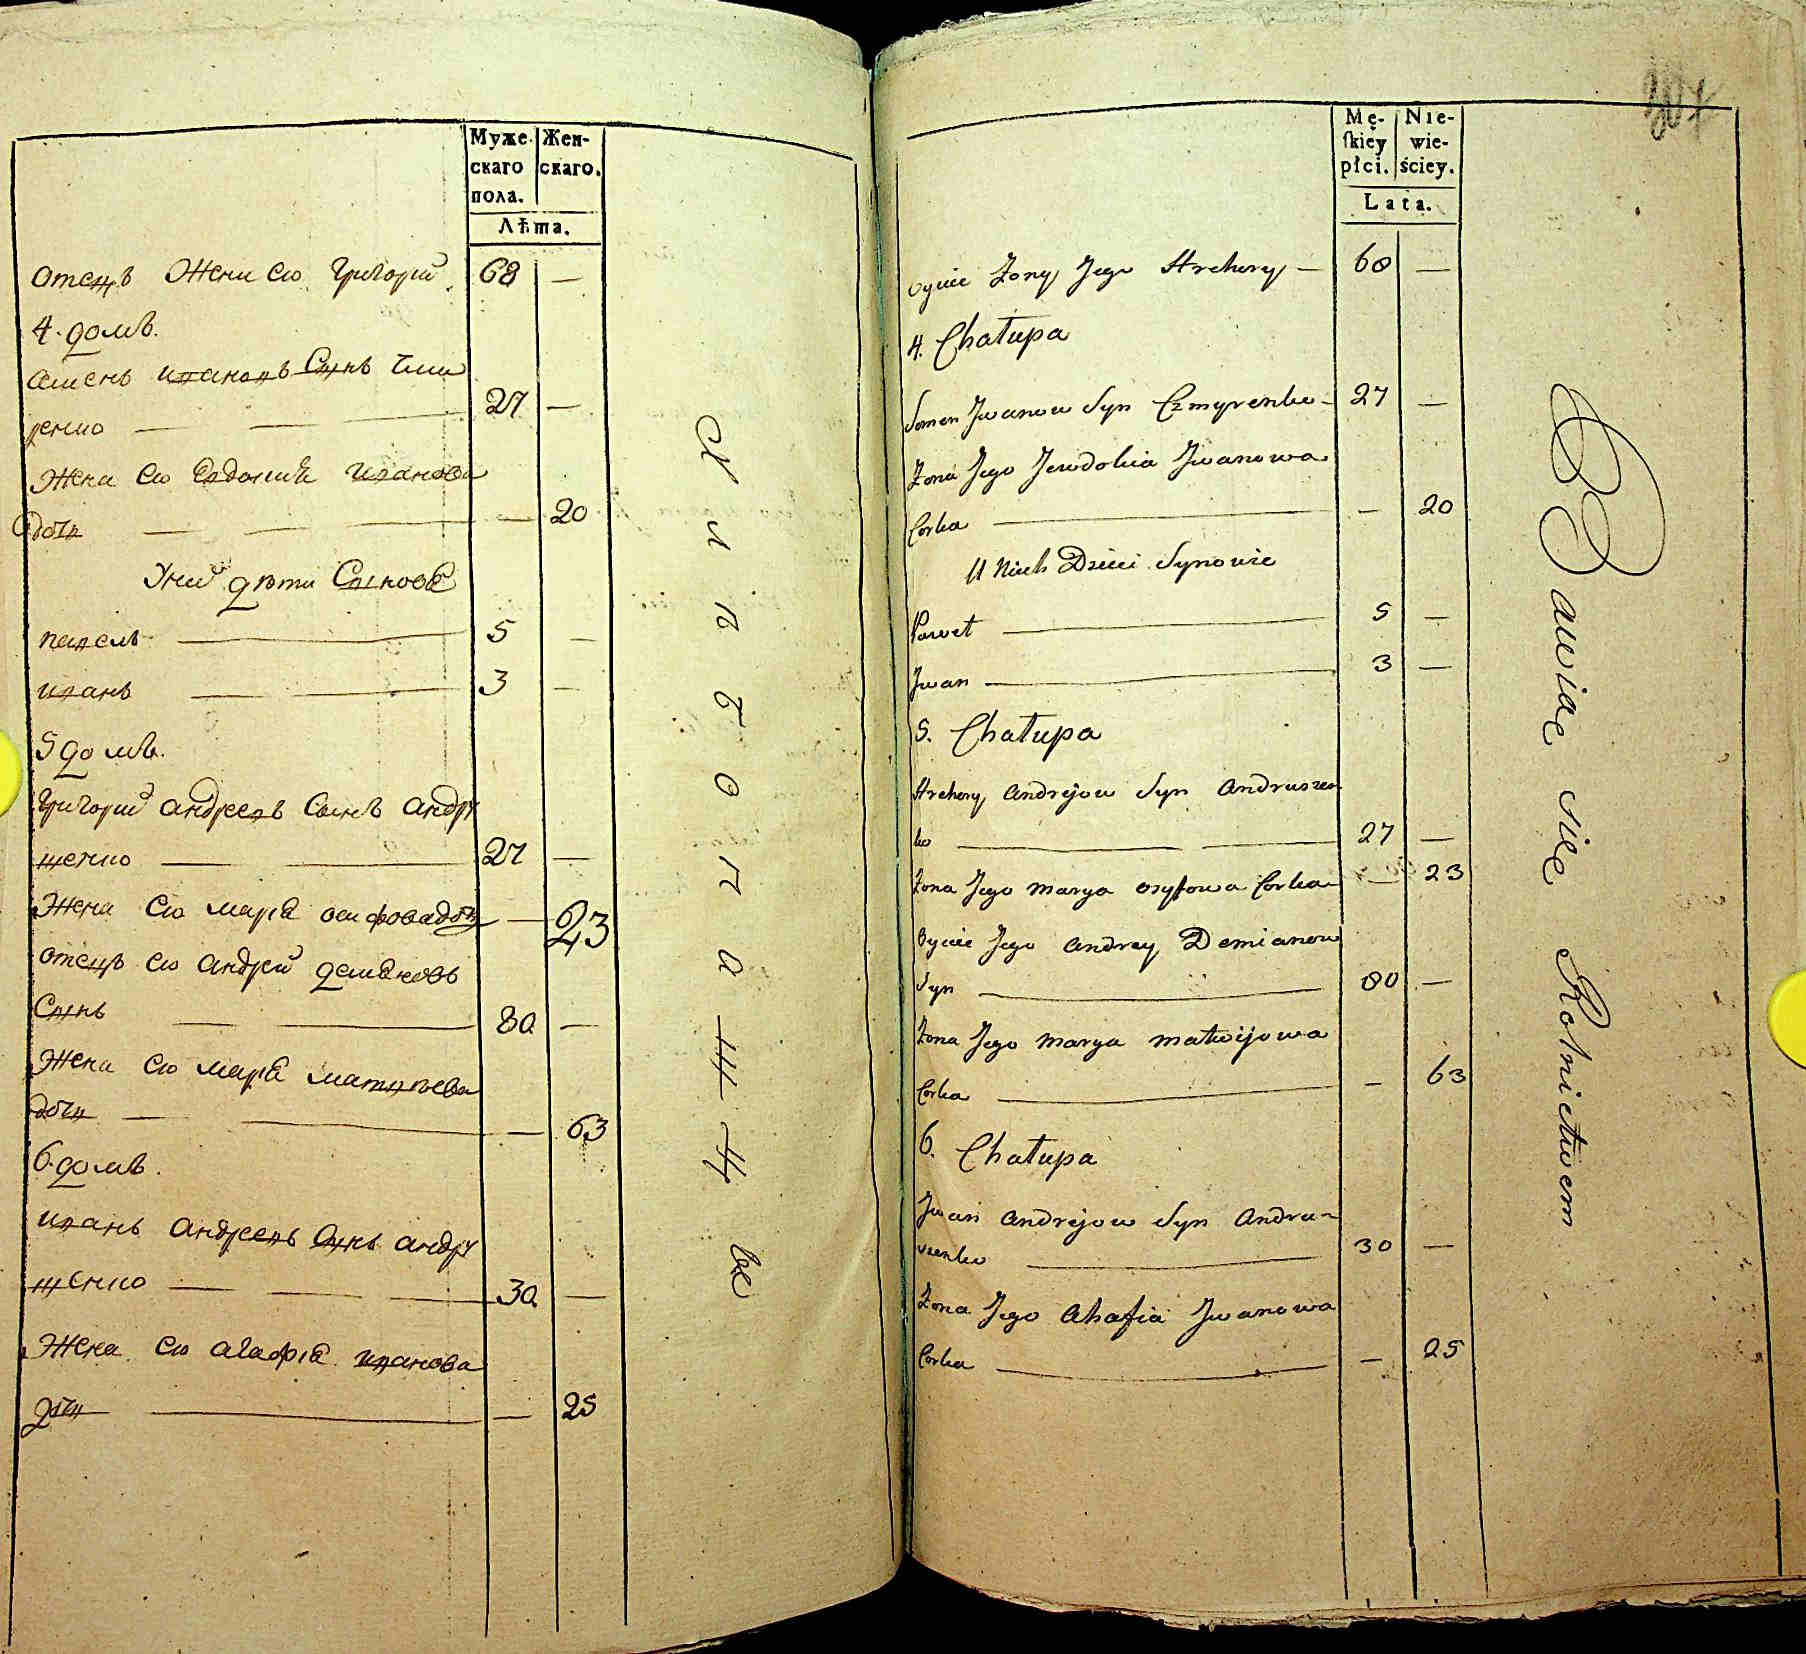 Муже- Жен-
скаго скаго.
пола.
Лѣта.
отецъ Жени его Григорій 68 —
4. домъ.
Семенъ Ивановъ Сынъ Чми
ренко — — — 27 —
Жена его Евдокия Иванова
дочь — — — — 20
У них дѣти Сыновѣ
Павелъ — 5 —
Иванъ — — 3 —
5 домъ.
Григорий Андреевъ Сынъ Андру
щенко — — 27 —
Жена его Маря осифова дочь — 23
отецъ его Андрей демяновъ
Сынъ — — 80 —
Жена его Маря Матвѣева
дочь — — — 63
6. домъ.
Иванъ Андреевъ Сынъ Андру
щенко — — — 30 —
Жена его Агафія Иванова
дочь — — 25
Mę- Nie-
ſkiey wie-
płci. ściey.
Lata.
Oyciec Żony Jego Hrehory — 68 —
4. Chałupa
Semen Jwanow Syn Czmyrenko — 27 —
Żona Jego Jewdokia Jwanowa
Corka — — 20
U Nich Dzieci Synowie
Paweł — 5 —
Jwan — 3 —
5. Chałupa
Hrehory Andrejow Syn Andruszen
ko — — 27 —
Żona Jego Marya Osyfowa Corka — — 23
Oyciec Jego Andrey Demianow
Syn — 80 —
Żona Jego Marya Matwijowa
Corka — — 63
6. Chałupa
Jwan Andrejow Syn Andru-
szenko — 30 —
Żona Jego Ahafia Jwanowa
Corka — — 25
Bawiąc się Rolnictwem